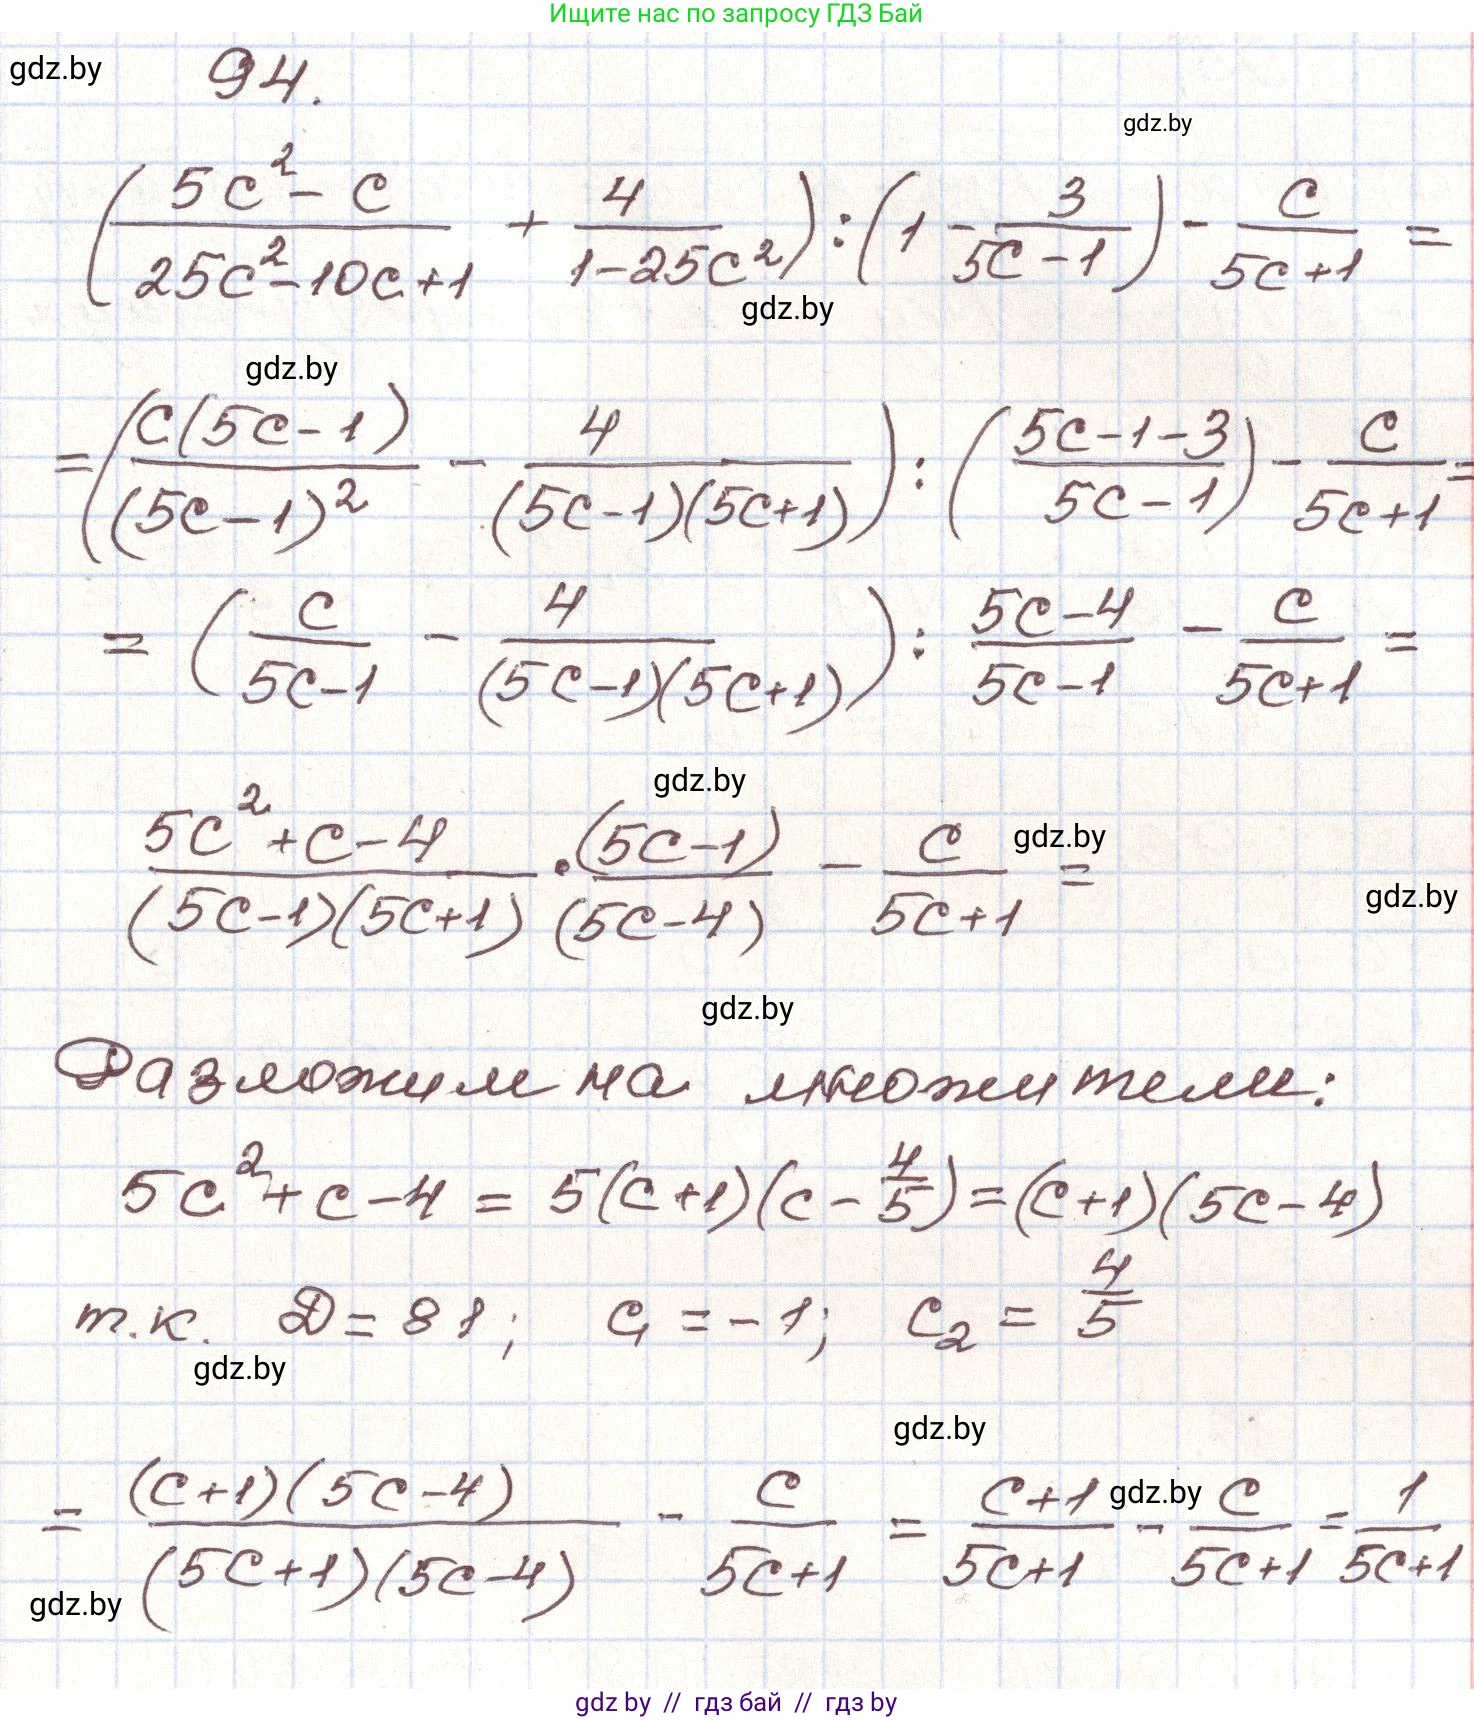 Ищите нас по запросу ГДЗ Бай
gdz.by 94.
gdz.by
(5c² - c / 25c² - 10c + 1 + 4 / 1 - 25c²) : (1 - 3 / 5c - 1) - c / 5c + 1 =
gdz.by
gdz.by
= (c(5c - 1) / (5c - 1)² - 4 / (5c - 1)(5c + 1)) : (5c - 1 - 3 / 5c - 1) - c / 5c + 1 =
= (c / 5c - 1 - 4 / (5c - 1)(5c + 1)) : 5c - 4 / 5c - 1 - c / 5c + 1 =
gdz.by
5c² + c - 4 / (5c - 1)(5c + 1) · (5c - 1) / (5c - 4) - c / 5c + 1 =
gdz.by
gdz.by
gdz.by
Разложим на множители:
5c² + c - 4 = 5(c + 1)(c - 4/5) = (c + 1)(5c - 4)
т.к. D = 81; c₁ = -1; c₂ = 4/5
gdz.by
gdz.by
= (c + 1)(5c - 4) / (5c + 1)(5c - 4) - c / 5c + 1 = c + 1 / 5c + 1 - c / 5c + 1 = 1 / 5c + 1
gdz.by
gdz.by
gdz by // гдз бай // гдз by